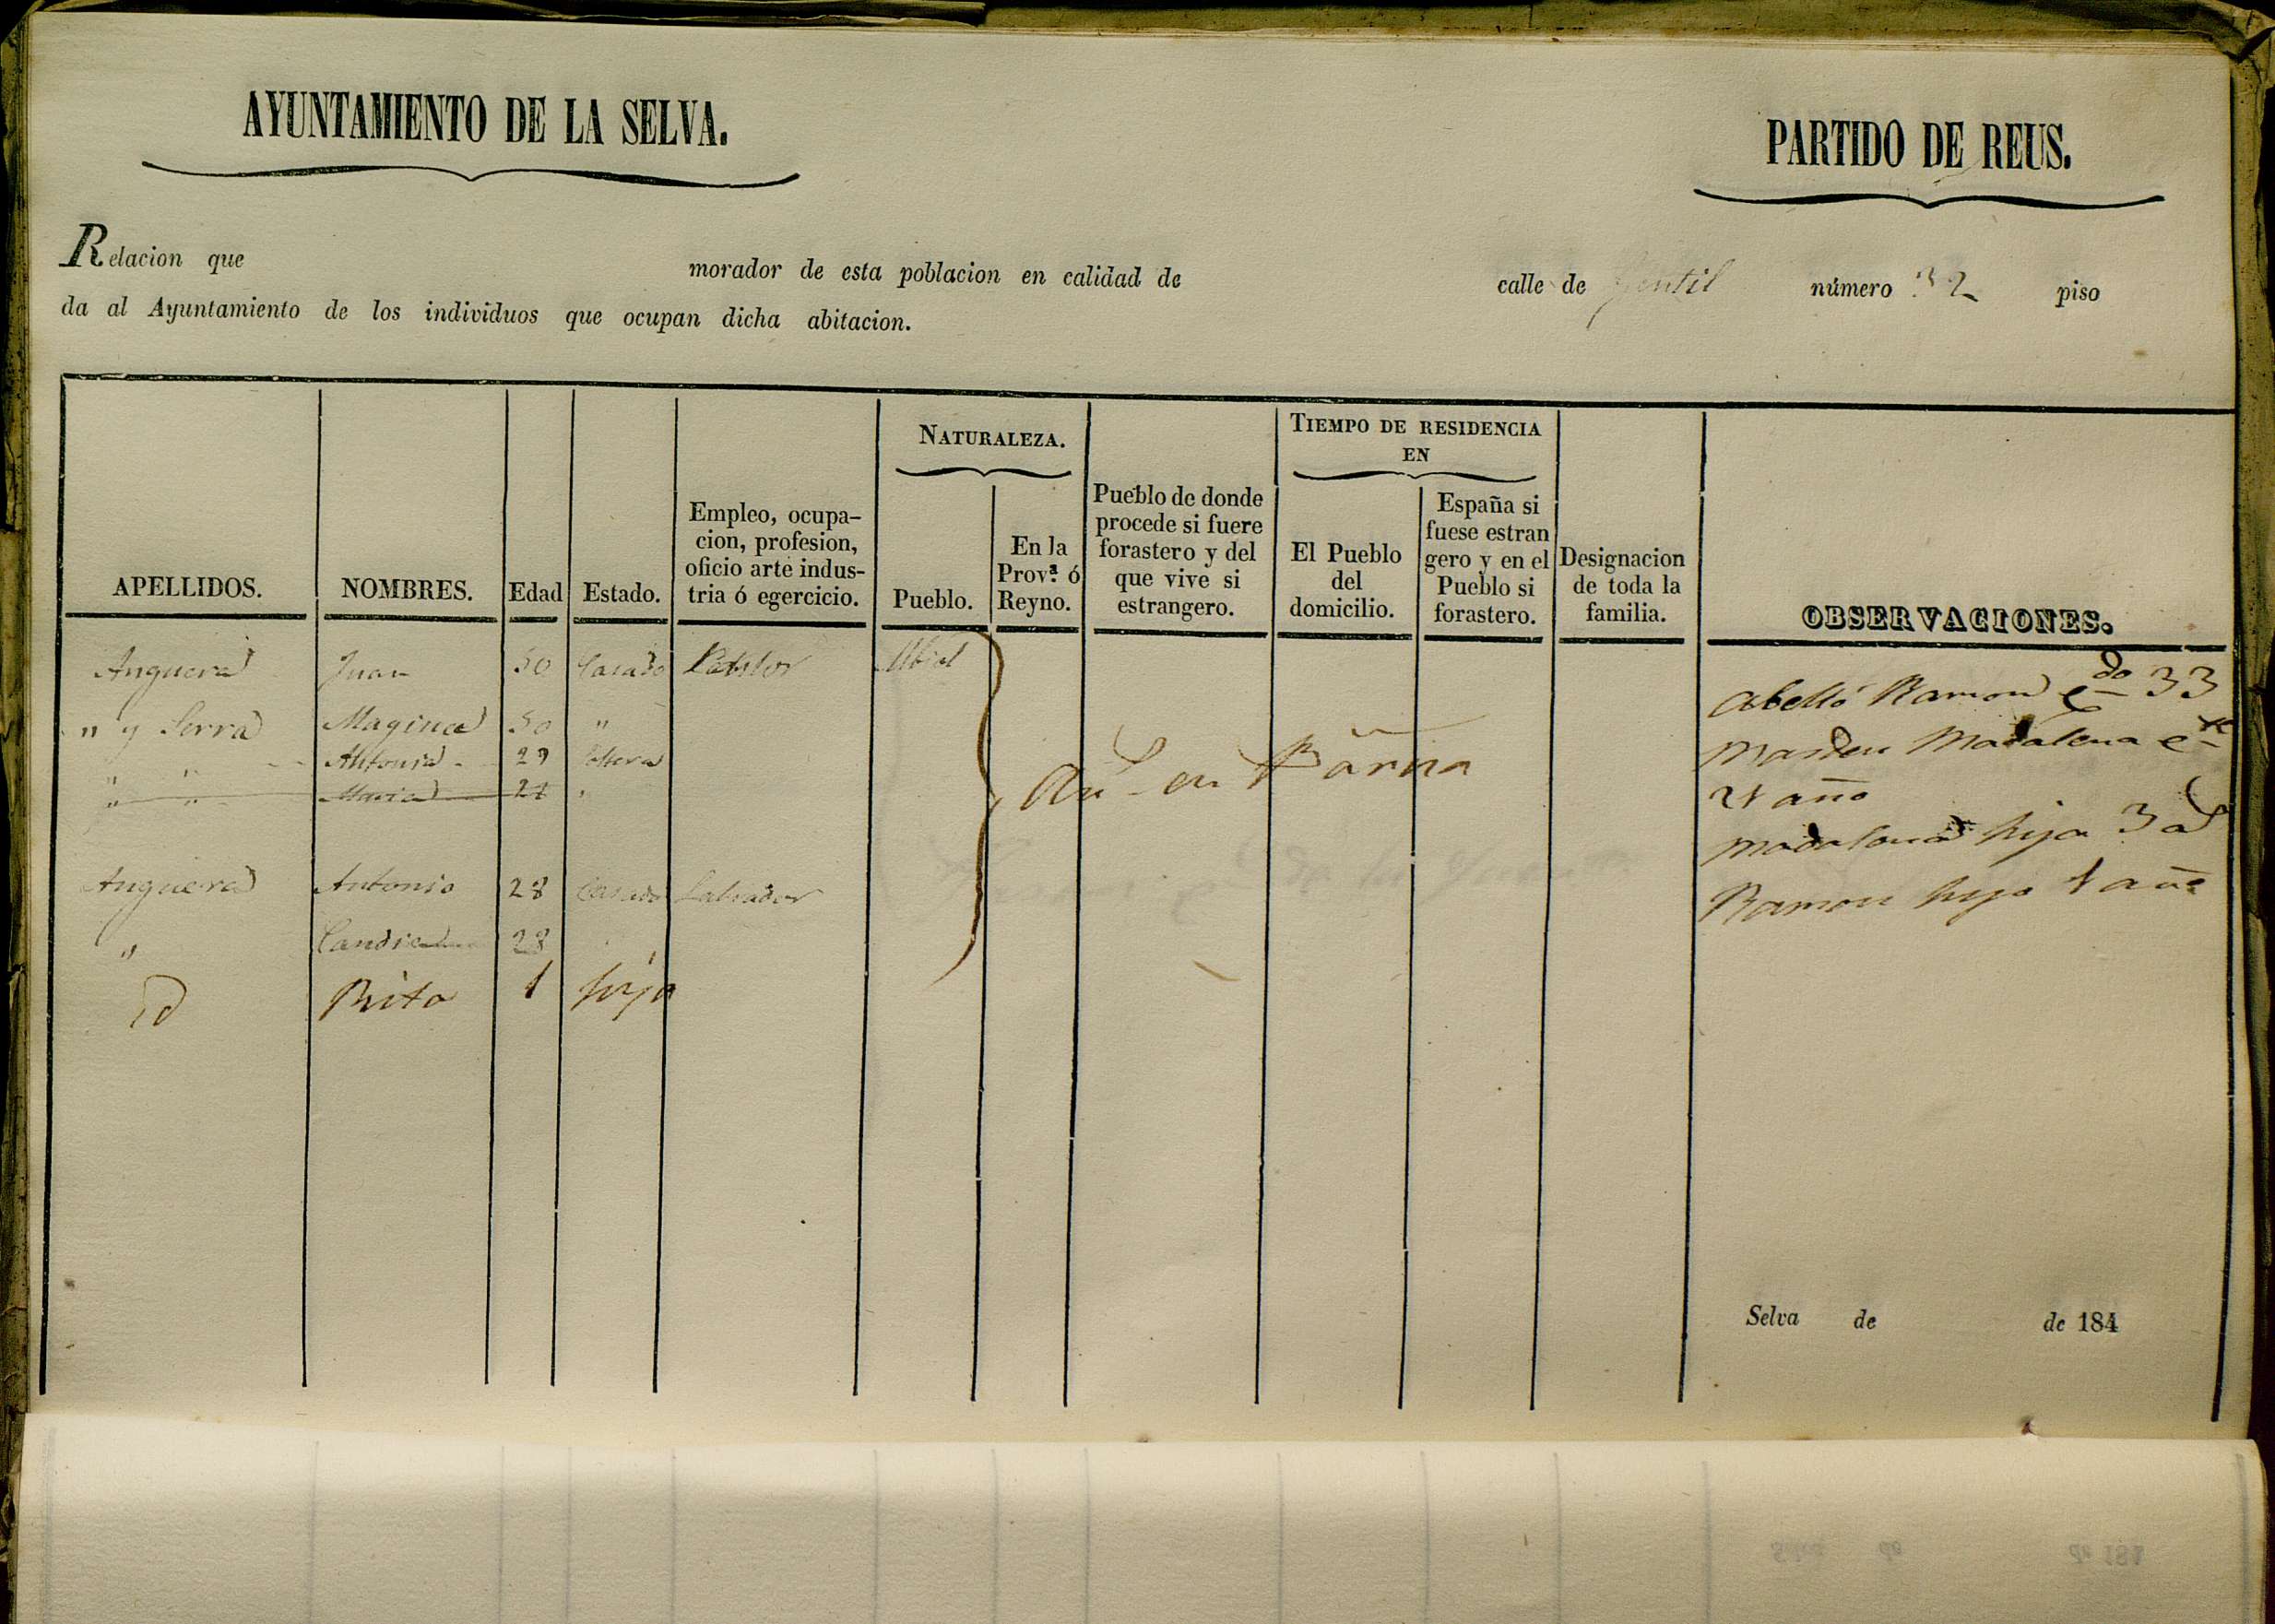 AYUNTAMIENTO DE LA SELVA.
PARTIDO DE REUS.
Relacion que morador de esta poblacion en calidad de calle de Gentil número 32 piso
da al Ayuntamiento de los individuos que ocupan dicha abitacion.
APELLIDOS.
NOMBRES.
Edad
Estado.
Empleo, ocupa-
cion, profesion,
oficio arte indus-
tria ó egercicio.
NATURALEZA.
Pueblo.
En la
Prov.ª ó
Reyno.
Pueblo de donde
procede si fuere
forastero y del
que vive si
estrangero.
TIEMPO DE RESIDENCIA
EN
El Pueblo
del
domicilio.
España si
fuese estran
gero y en el
Pueblo si
forastero.
Designacion
de toda la
familia.
OBSERVACIONES.
Anguera Juan 50 Casado
" y Serra Magina 50 "
" " Antonia 29 Soltera
" " Maria 21 "
en Barna
Anguera Antonio 28 Casado Labrador
" Candia 28
Id Rita 1 hija
Abelló Ramon 33
Madalena
21 año
Madalena hija 3 a
Ramon hijo 1 año
Selva de de 184